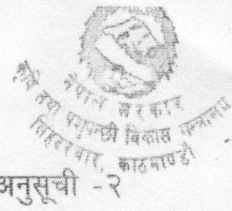 नेपाल सरकार
कृषि तथा पशुपन्छी विकास मन्त्रालय
सिंहदरबार, काठमाण्डौ
अनुसूची -२